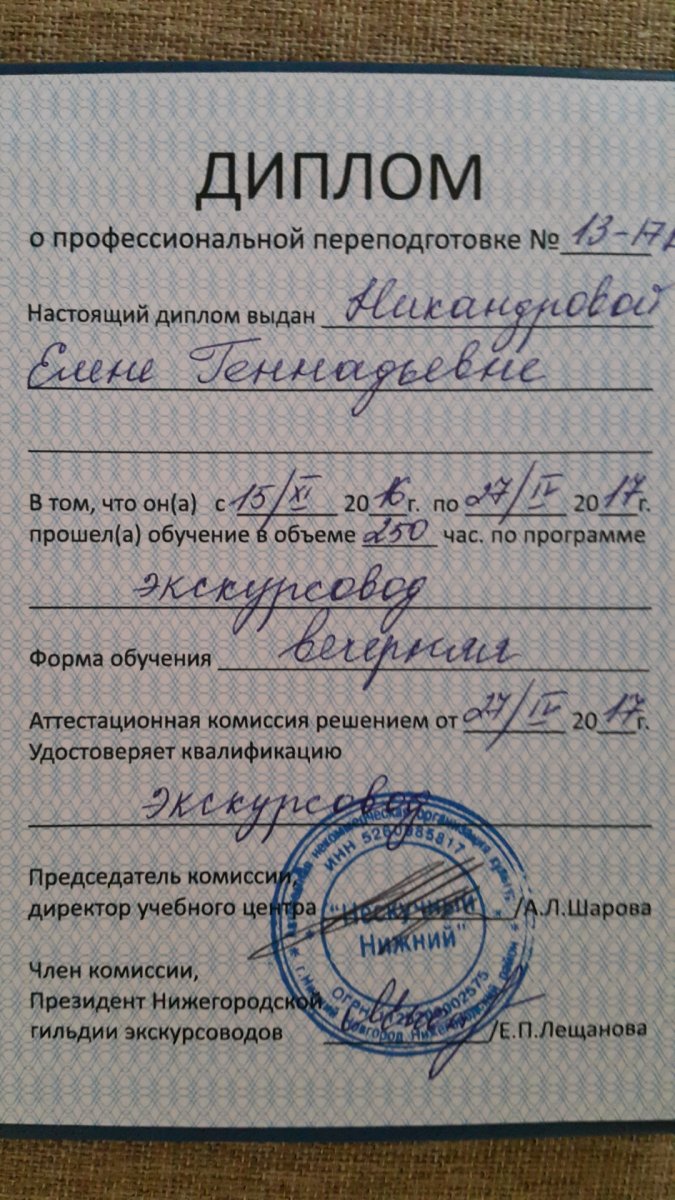 ДИПЛОМ
о профессиональной переподготовке № 13-17
Настоящий диплом выдан Никандровой
Елене Геннадьевне
В том, что он(а) с 15/XI 2016г. по 27/IV 2017г.
прошел(а) обучение в объеме 250 час. по программе
экскурсовод
Форма обучения вечерняя
Аттестационная комиссия решением от 27/IV 2017г.
Удостоверяет квалификацию
экскурсовод
Председатель комиссии,
директор учебного центра /А.Л.Шарова
Член комиссии,
Президент Нижегородской
гильдии экскурсоводов /Е.П.Лещанова
некоммерческая организация
ИНН 5260385817
"Нескучный
Нижний"
ОГРН
г.Нижний Новгород Нижегородский район